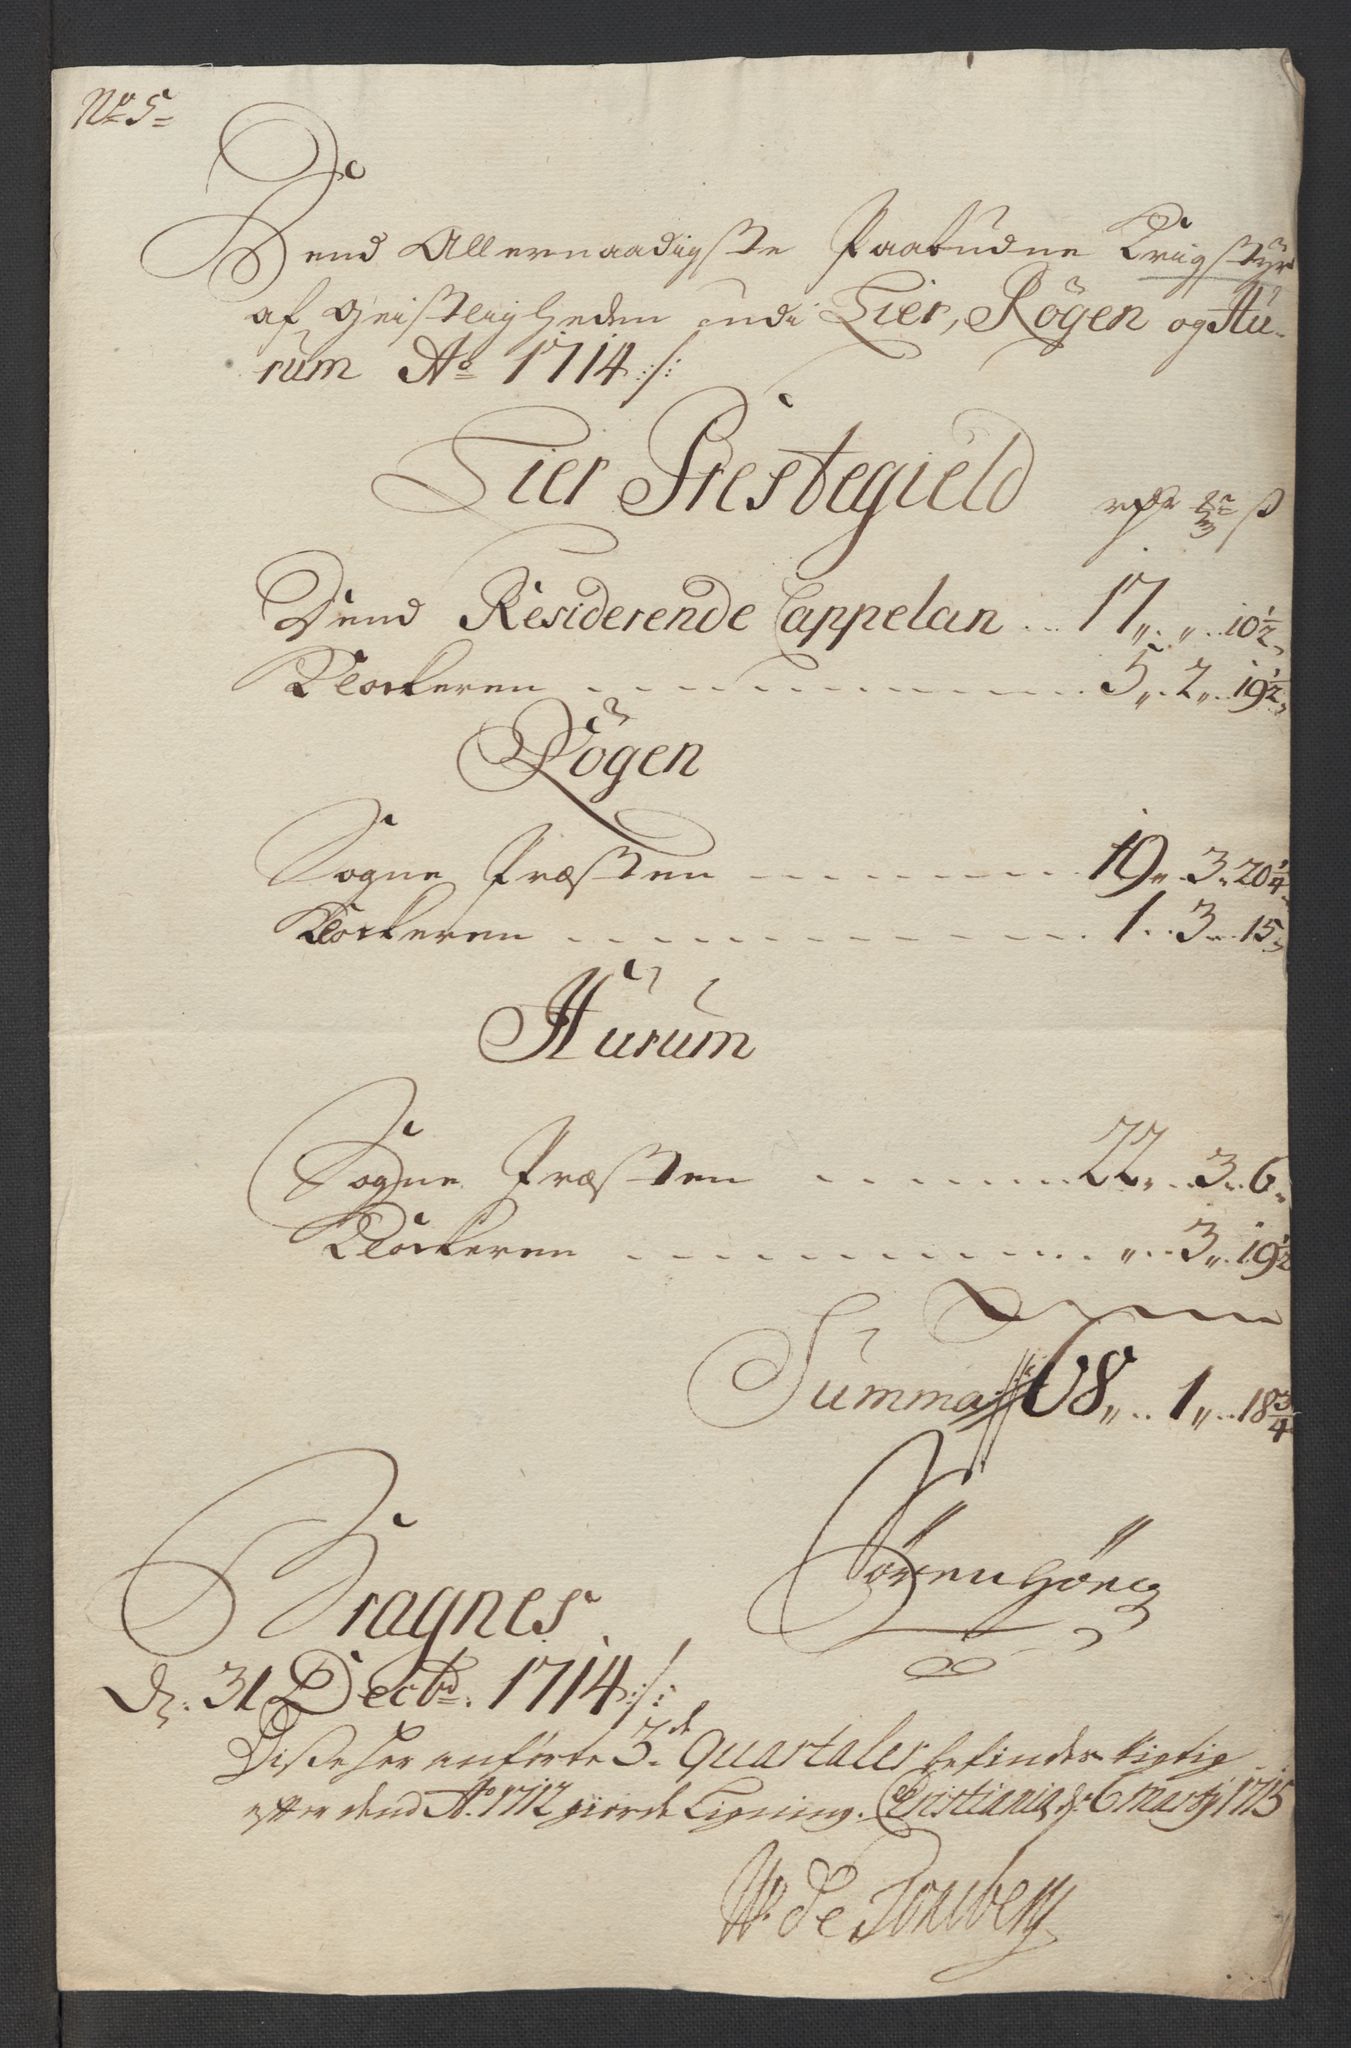 No 5
Dend Allernaadigste Paabudne Krigstyr
af Geistligheden udi Lier, Rögen og Hu-
rum Ao 1714 :/:
Lier Prestegield
rdr ß
Dend Residerende Cappelan .. 17 „ . „ .. 10½
Klockeren . . . . . . 5 „ . 2 „ . . 19½
Rögen
Sogne Præsten . . . . . . 19 „ . 3 „ 20¼
Klockeren . . . . . . 1 . . 3 „ . 15
Hurum
Sogne Præsten . . . . . . 22 „ . . 3 „ . 6
Klockeren . . . . . . „ . . 3 „ . 19½
Summa 68 „ . . 1 „ . . 18¾
Bragnes
d. 31 Decbr. 1714 :/:
Sören
Disse her anförte 3de Quartaler befindes rigtig
efter dend Ao 1712 giorde Ligning. Christiania d. 6 Martj 1715
W. de Tonsberg